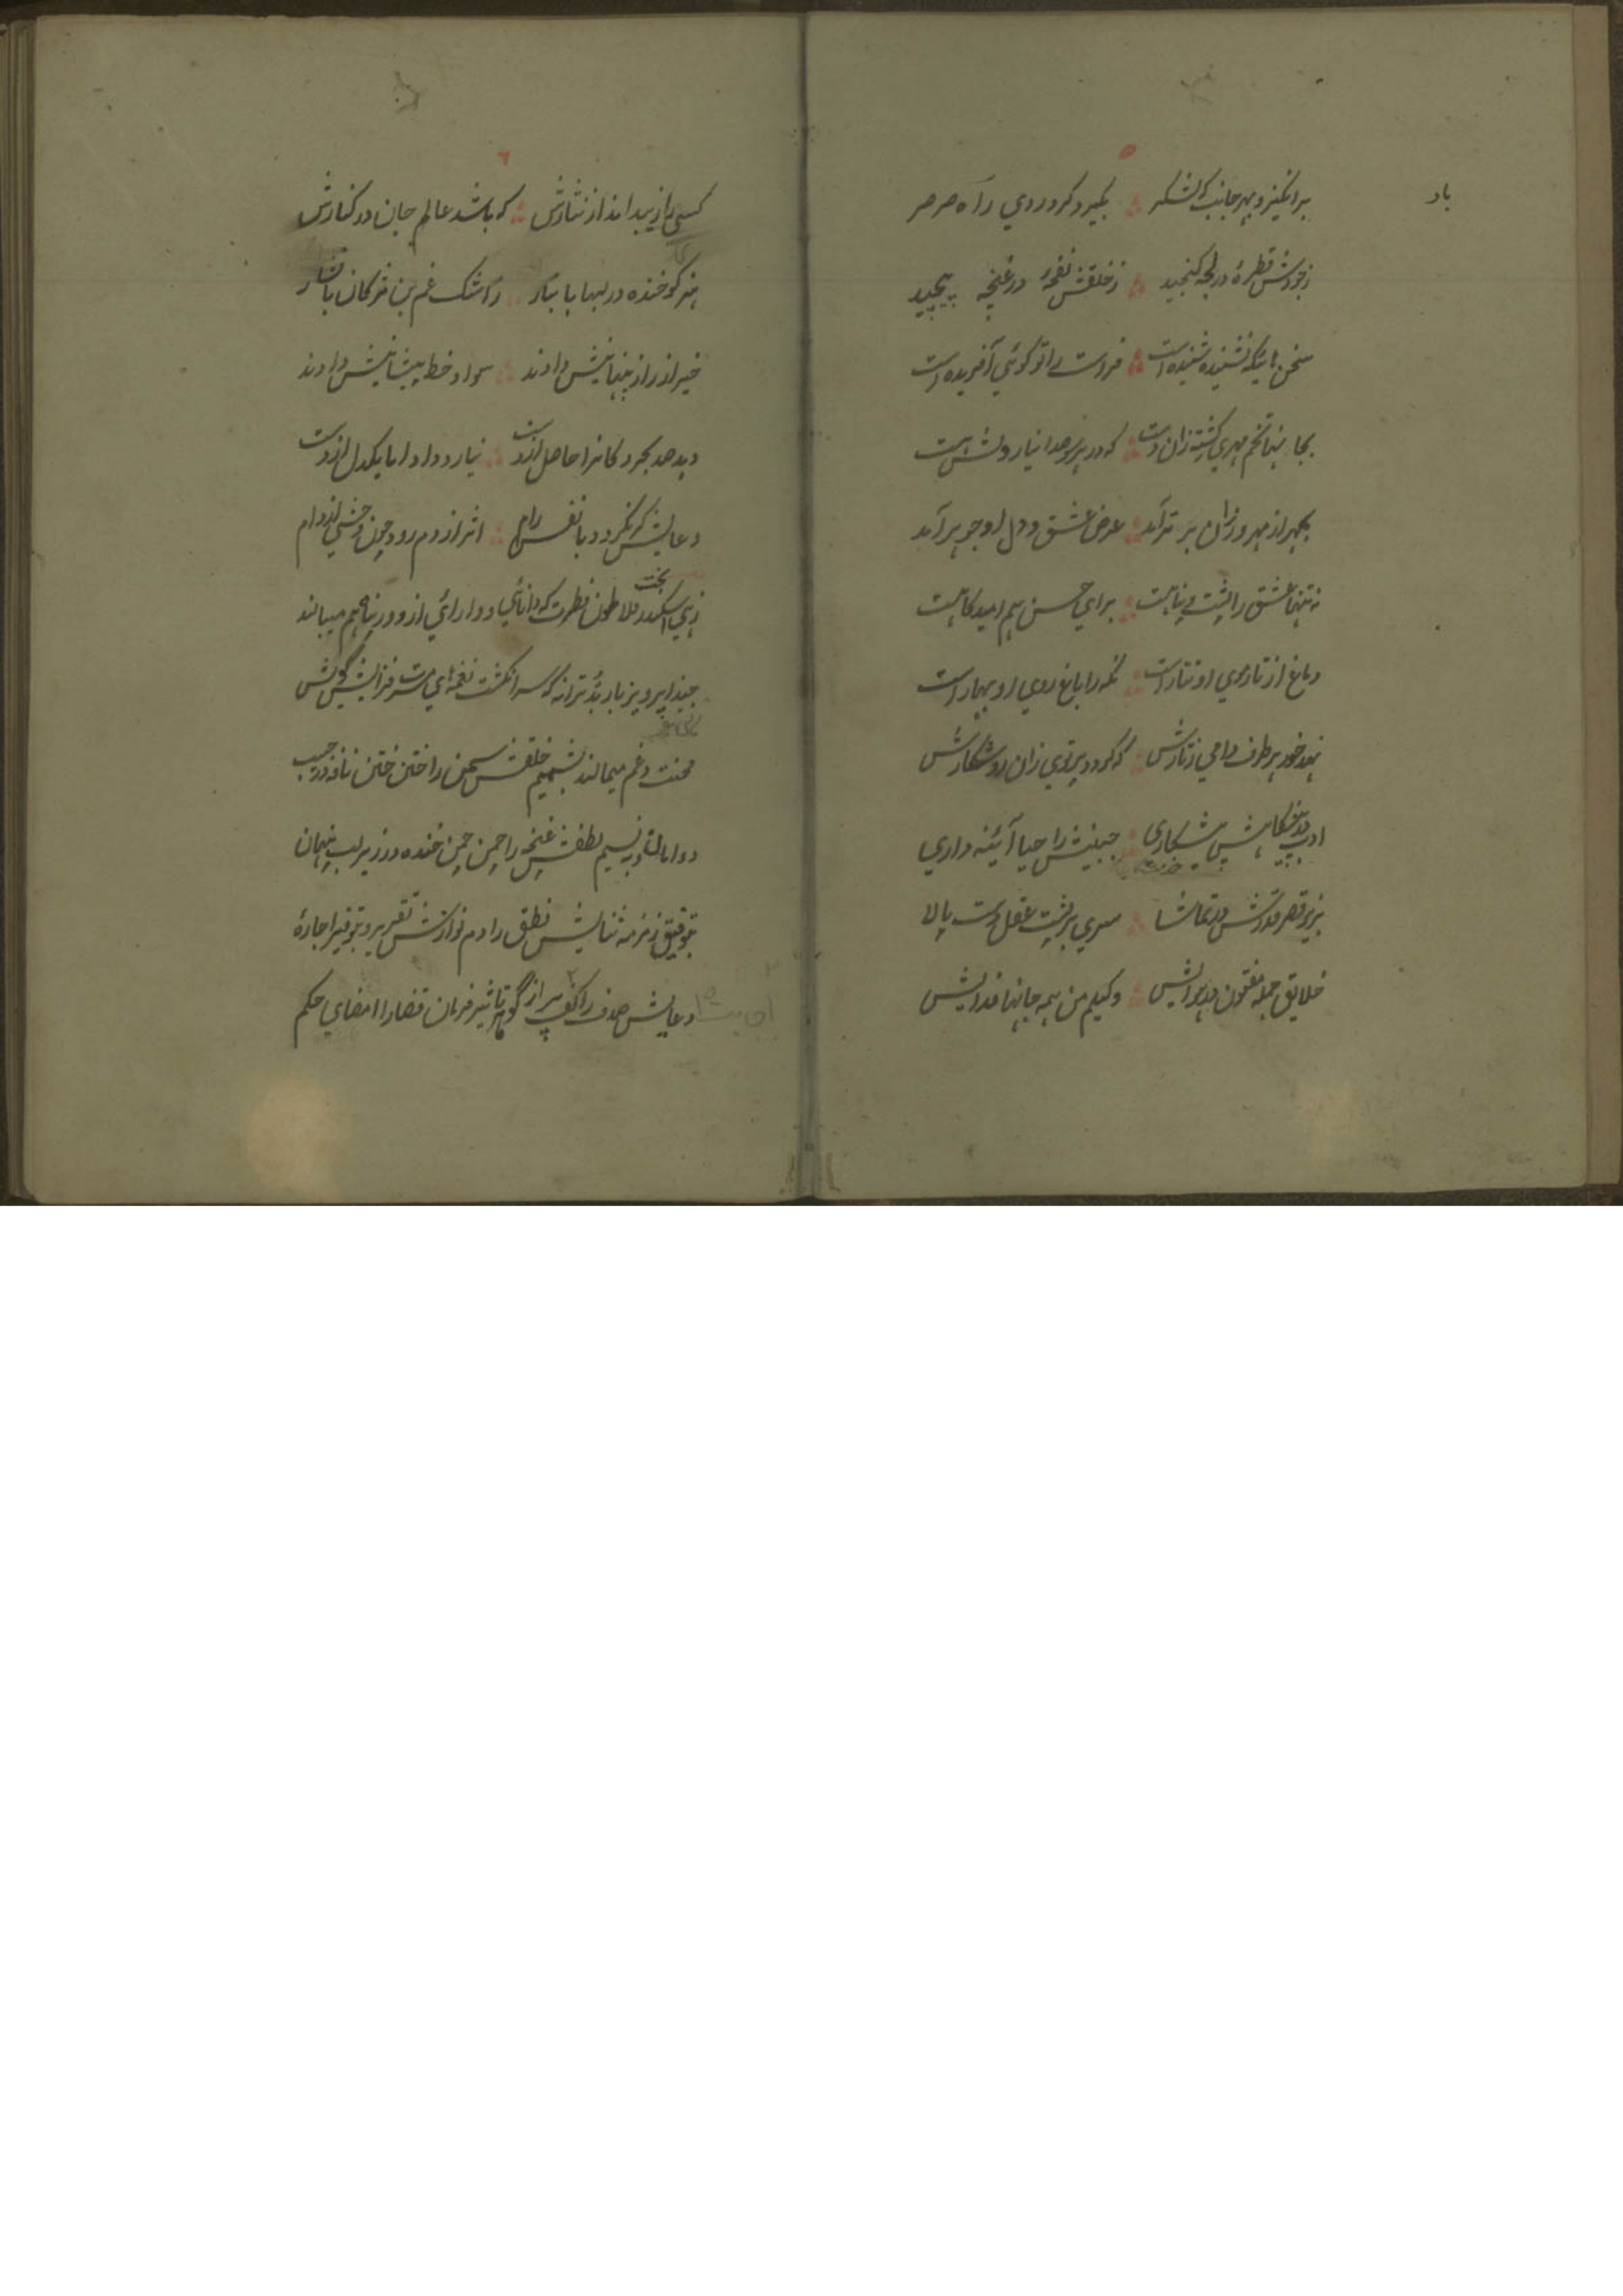 ۵
باد
برانگیزد بهر جانب که لشکر ∴ بگیرد گرد روی راه صرصر
ز جودش قطرهٔ در لجه گنجید ∴ ز خلقش نفحهٔ در غنچه پیچید
سخن تا یکه نشنیده شنیده است ∴ فراست را تو گوئی آفریده است
بجانها تخم مهری کشته زان دست ∴ که در هر
بچهر از مهر وزان برتر آمد ∴ عرض عشق و دل او جوهر آمد
نه تنها عشق را پشت و پناهست ∴ برای حسن هم امیدگاهست
دماغ از تار موی او تتار است ∴ نگه را باغ روی او بهار است
نهد خور هر طرف دامی ز تارش ∴ که گردد پرتوی زان رو شکارش
ادب پیش نگاهش پیشکاری ∴ جبینش را حیا آئینه داری
بزیر قصر قدرش در تماشا ∴ سری بر پشت عقل دست بالا
خلایق جمله مفتون هوایش ∴ وکیلم من همه جانها فدایش
۶
کسی را زیبد انداز نثارش ∴ که باشد عالم جان در کنارش
هنر گو خنده در لبها بانبار ∴ ز اشک غم بن مژگان بانشار
خبر از راز پنهانیش دادند ∴ سواد خط پیشانیش دادند
دهد صد بحر و کانرا حاصل از دست ∴ نیارد داد اما یکدل از دست
دعایش گر نگردد با نفس رام ∴ اثر از دم رود چون وحشی از دام
زهی اسکندر بخت فلاطون فطرت که دانائی و دارائی از و در پناه هم میبالند
حبذا پرویز باربد ترانه که سرانگشت نغمهای مسرت فزایش گوش
محنت و غم میمالند بشمیم خلقش سمن را ختن ختن نافه در جیب
و دامان و به نسیم لطفش غنچه را چمن چمن خنده در زیر لب پنهان
بتوفیق زمزمه ثنایش نطق را دم نوازش تقریر و بتوفیر اجارهٔ
دعایش صدف را کف پر از گوهر تاثیر فرمان قضا را امضای حکم